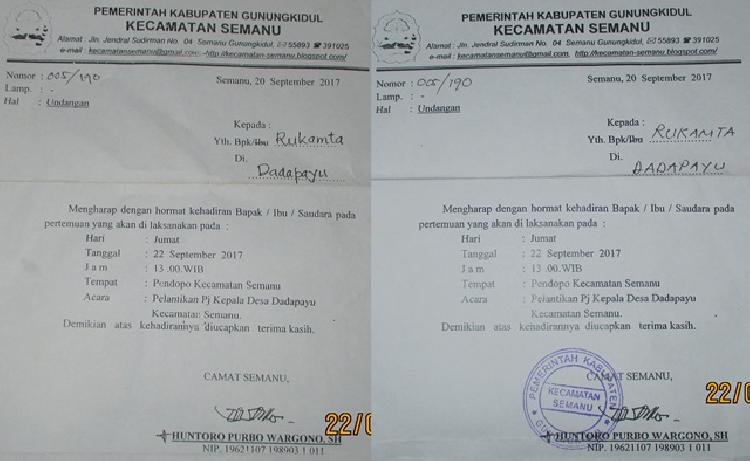 PEMERINTAH KABUPATEN GUNUNGKIDUL
KECAMATAN SEMANU
Alamat : Jln. Jendral Sudirman No. 04 Semanu Gunungkidul, ✉ 55893 ☎ 391025
e-mail : kecamatansemanu@gmail.com, http://kecamatan-semanu.blogspot.com/
Nomor : 005/190
Semanu, 20 September 2017
Lamp. : -
Hal : Undangan
Kepada :
Yth. Bpk/Ibu Rukamta
Di.
Dadapayu
Mengharap dengan hormat kehadiran Bapak / Ibu / Saudara pada
pertemuan yang akan di laksanakan pada :
Hari : Jumat
Tanggal : 22 September 2017
Jam : 13 .00.WIB
Tempat : Pendopo Kecamatan Semanu
Acara : Pelantikan Pj Kepala Desa Dadapayu
Kecamatan Semanu.
Demikian atas kehadirannya diucapkan terima kasih.
CAMAT SEMANU,
HUNTORO PURBO WARGONO, SH
NIP. 19621107 198903 1 011
22/0
PEMERINTAH KABUPATEN GUNUNGKIDUL
KECAMATAN SEMANU
Alamat : Jln. Jendral Sudirman No. 04 Semanu Gunungkidul, ✉ 55893 ☎ 391025
e-mail : kecamatansemanu@gmail.com, http://kecamatan-semanu.blogspot.com/
Nomor : 005/190
Semanu, 20 September 2017
Lamp. : -
Hal : Undangan
Kepada :
Yth. Bpk/Ibu RUKAMTA
Di.
DADAPAYU
Mengharap dengan hormat kehadiran Bapak / Ibu / Saudara pada
pertemuan yang akan di laksanakan pada :
Hari : Jumat
Tanggal : 22 September 2017
Jam : 13 .00.WIB
Tempat : Pendopo Kecamatan Semanu
Acara : Pelantikan Pj Kepala Desa Dadapayu
Kecamatan Semanu.
Demikian atas kehadirannya diucapkan terima kasih.
CAMAT SEMANU,
PEMERINTAH KABUPATEN
KECAMATAN
SEMANU
HUNTORO PURBO WARGONO, SH
NIP. 19621107 198903 1 011
22/0